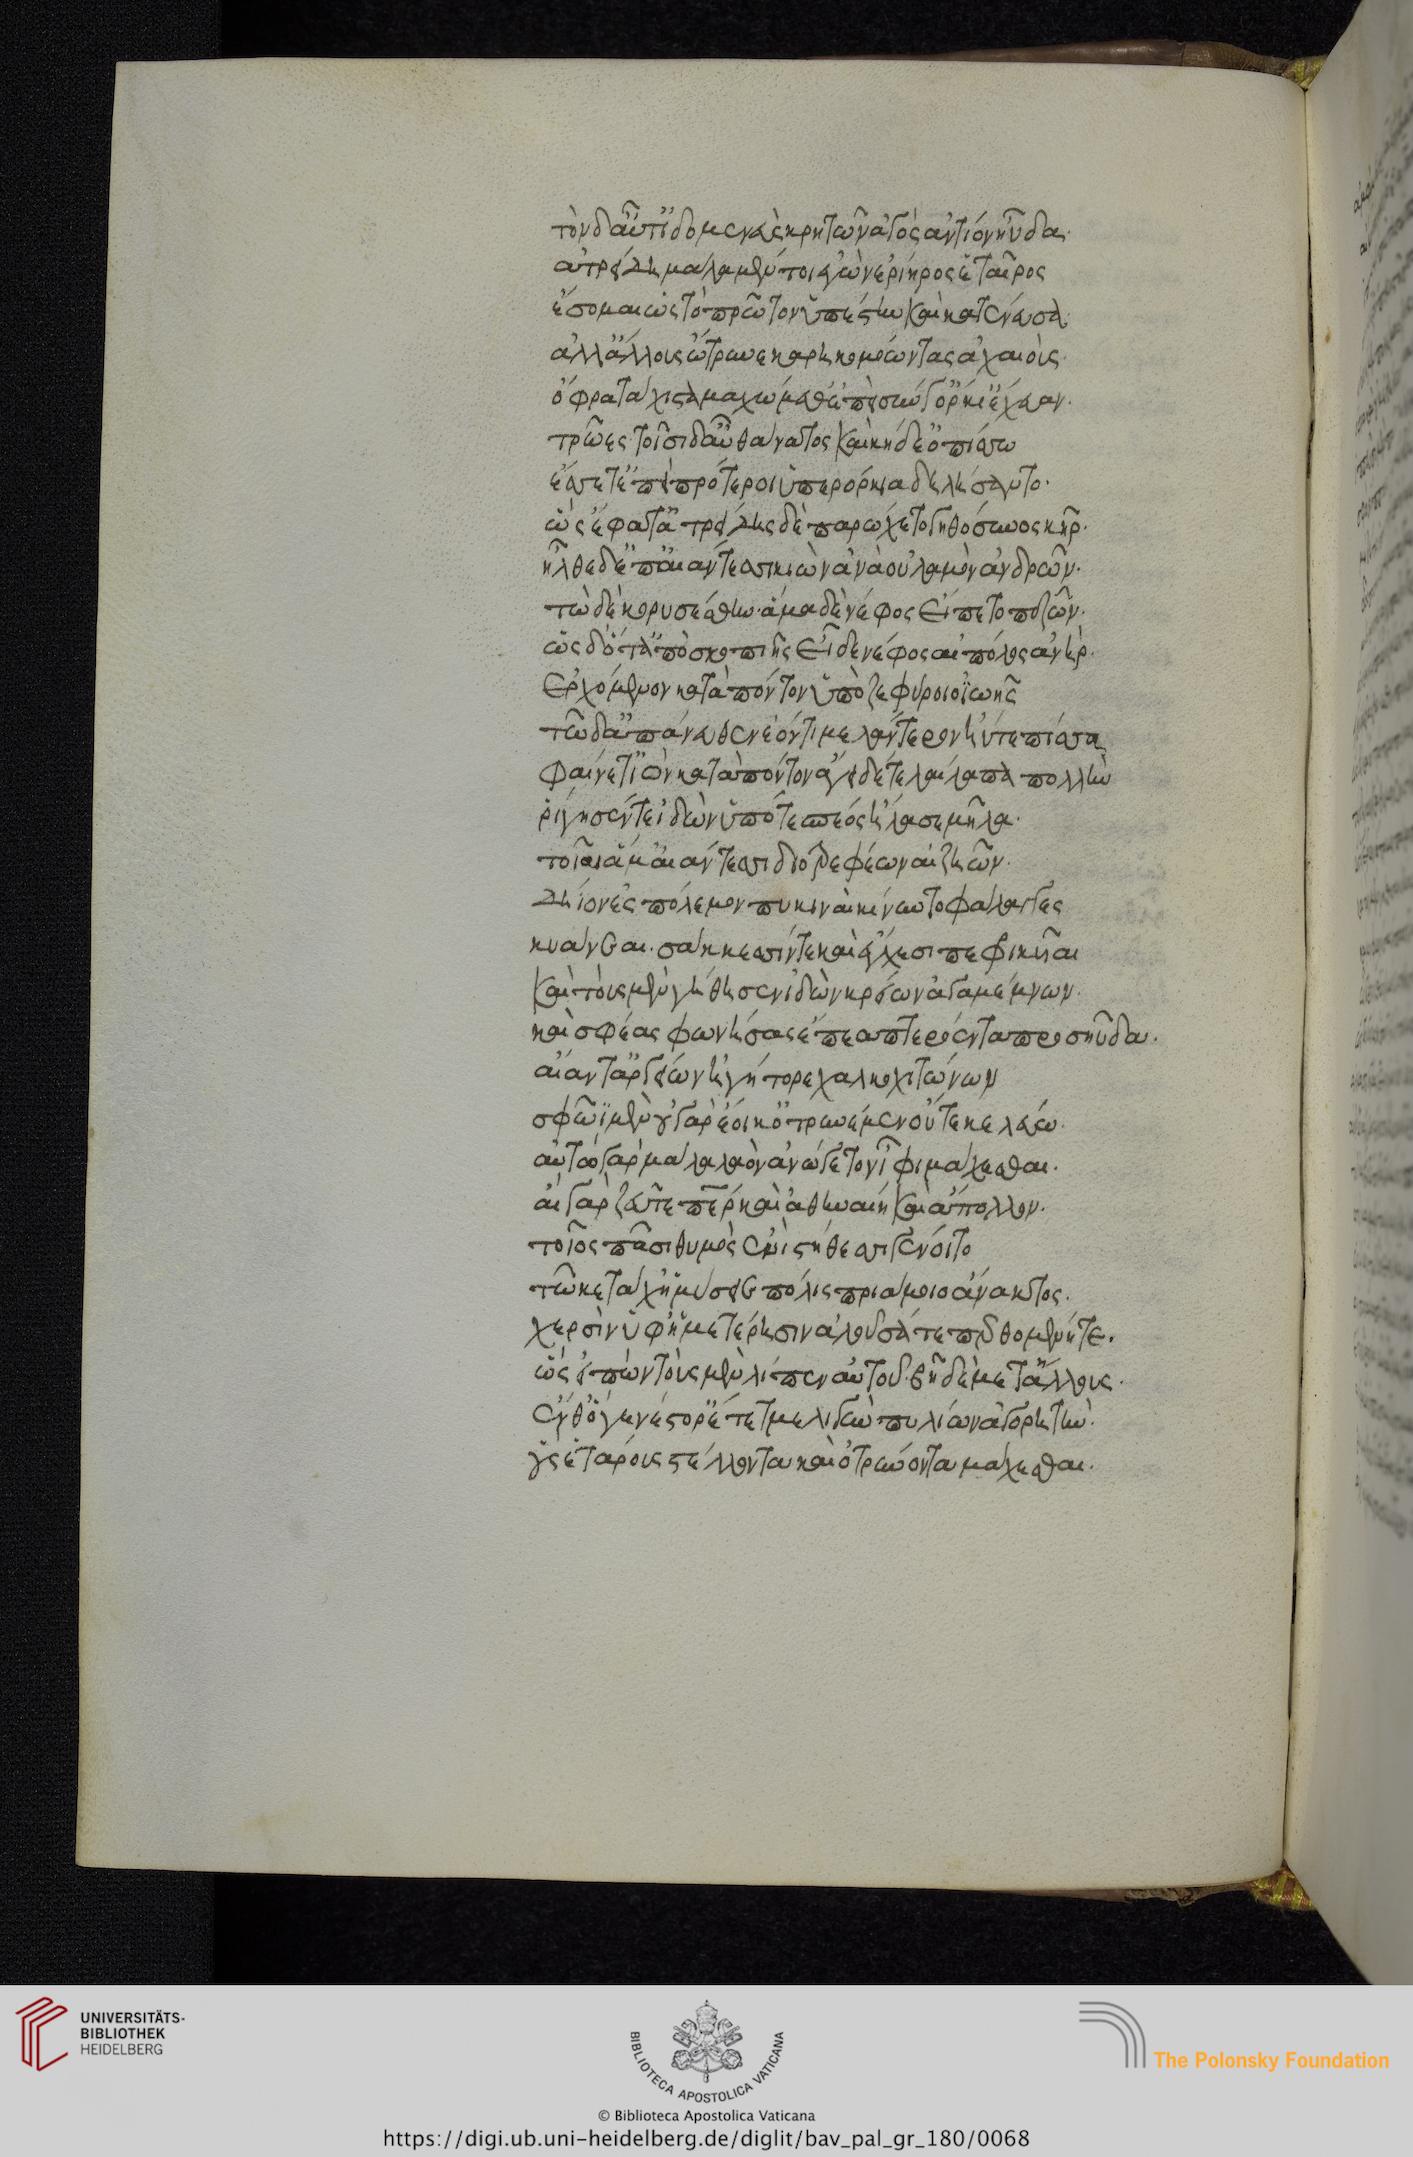 τὸν δ' αὖτ' ἰδομενεὺς κρητῶν ἀγὸς ἀντίον ηὔδα.
ἀτρείδη μάλα μέν τοι ἐγὼν ἐρίηρος ἑταῖρος
ἔσομαι ὡς τὸ πρῶτον ὑπέστην καὶ κατένευσα.
ἀλλ' ἄλλους ὤτρυνε καρηκομόωντας ἀχαιούς.
ὄφρα τάχιστα μαχώμεθ' ἐπεὶ σύν γ' ὅρκι' ἔχευαν.
τρῶες τοῖσι δ' αὖ θάνατος καὶ κήδε' ὀπίσσω
ἔσσετ' ἐπεὶ πρότεροι ὑπὲρ ὅρκια δηλήσαντο.
ὣς ἔφατ' ἀτρείδης δὲ παρώχετο γηθόσυνος κῆρ.
ἦλθε δ' ἐπ' αἰάντεσσι κιὼν ἀνὰ οὐλαμὸν ἀνδρῶν.
τὼ δὲ κορυσσέσθην. ἅμα δὲ νέφος εἵπετο πεζῶν.
ὡς δ' ὅτ' ἀπὸ σκοπιῆς εἶδε νέφος αἰπόλος ἀνήρ.
ἐρχόμενον κατὰ πόντον ὑπὸ ζεφύροιο ἰωῆς
τῶ δέ τ' ἄνευθεν ἐόντι μελάντερον ἠΰτε πίσσα
φαίνετ' ἰὸν κατὰ πόντον ἄγει δέ τε λαίλαπα πολλὴν
ῥίγησέν τε ἰδὼν ὑπό τε σπέος ἤλασε μῆλα.
τοῖαι ἅμ' αἰάντεσσι διοτρεφέων αἰζηῶν.
δήϊον ἐς πόλεμον πυκιναὶ κίνυντο φάλαγγες
κυάνεαι. σάκκεσσίν τε καὶ ἔγχεσι πεφρικυῖαι
καὶ τοὺς μὲν γήθησεν ἰδὼν κρείων ἀγαμέμνων.
καὶ σφέας φωνήσας ἔπεα πτερόεντα προσηύδα.
αἴαντ' ἀργείων ἡγήτορε χαλκοχιτώνων
σφῶϊ μὲν οὐ γὰρ ἔοικ' ὀτρυνέμεν οὔτε κελεύω.
αὐτὼ γὰρ μάλα λαὸν ἀνώγετον ἶφι μάχεσθαι.
αἲ γὰρ ζεῦ τε πάτερ καὶ ἀθηναίη καὶ ἄπολλον.
τοῖος πᾶσι θυμὸς ἐνὶ στήθεσσι γένοιτο
τῶ κε τάχ' ἠμύσειε πόλις πριάμοιο ἄνακτος.
χερσὶν ὑφ' ἡμετέρησιν ἁλοῦσά τε περθομένη τε.
ὣς εἰπὼν τοὺς μὲν λίπεν αὐτοῦ. βῆ δὲ μετ' ἄλλους.
ἔνθ' ὅγε νέστορ' ἔτετμε λιγὺν πυλίων ἀγορητήν.
οὓς ἑτάρους στέλλοντα καὶ ὀτρύνοντα μάχεσθαι.
UNIVERSITÄTS-
BIBLIOTHEK
HEIDELBERG
BIBLIOTECA APOSTOLICA VATICANA
The Polonsky Foundation
© Biblioteca Apostolica Vaticana
https://digi.ub.uni-heidelberg.de/diglit/bav_pal_gr_180/0068